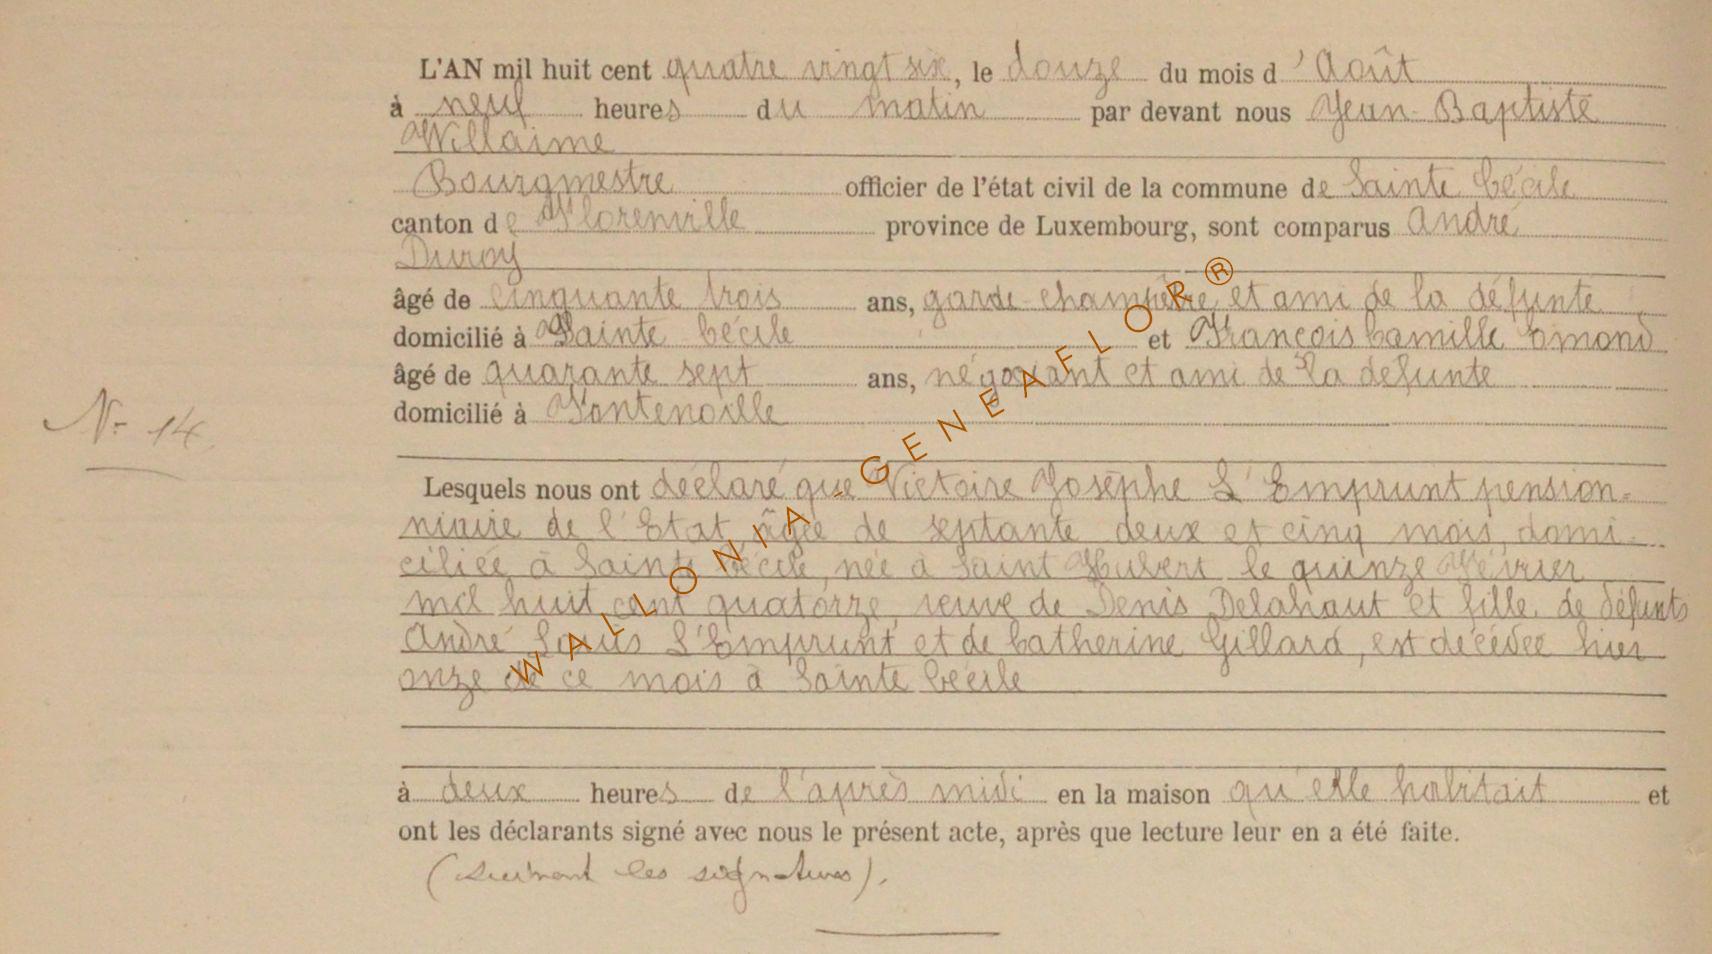 L'AN mil huit cent quatre vingt six, le douze du mois d'Août
à neuf heures du matin par devant nous Jean-Baptiste
Willaime
Bourgmestre officier de l'état civil de la commune de Sainte Cécile
canton de Florenville province de Luxembourg, sont comparus André
Duroy
âgé de cinquante trois ans, garde-champêtre et ami de la défunte
domicilié à Sainte Cécile et François Camille Emond
âgé de quarante sept ans, négociant et ami de la défunte
domicilié à Fontenoille
N° 14.
Lesquels nous ont déclaré que Victoire Josèphe L'Emprunt pension-
niaire de l'Etat, âgée de septante deux et cinq mois, domi-
ciliée à Sainte Cécile, née à Saint Hubert le quinze Février
mil huit cent quatorze, veuve de Denis Delahaut et fille de défunts
André Louis L'Emprunt et de Catherine Gillard, est décédée hier
onze de ce mois à Sainte Cécile
à deux heures de l'après midi en la maison qu'elle habitait et
ont les déclarants signé avec nous le présent acte, après que lecture leur en a été faite.
(suivent les signatures).
WALLONIA-GENEAFLOR®